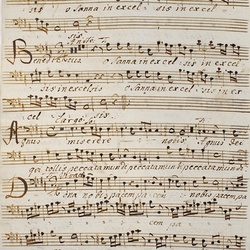 sis o Sanna in excel sis in excel
sis
Benedictus o Sanna in excel sis in excel
sis in excelsis o Sanna in excel sis in ex
cel sis Largo
Agnus miserere nobis Agnus Dei
qui tollis peccata mundi peccata mundi peccata mundi
Dona nobis pacem pacem nobis pacem pa
cem pa